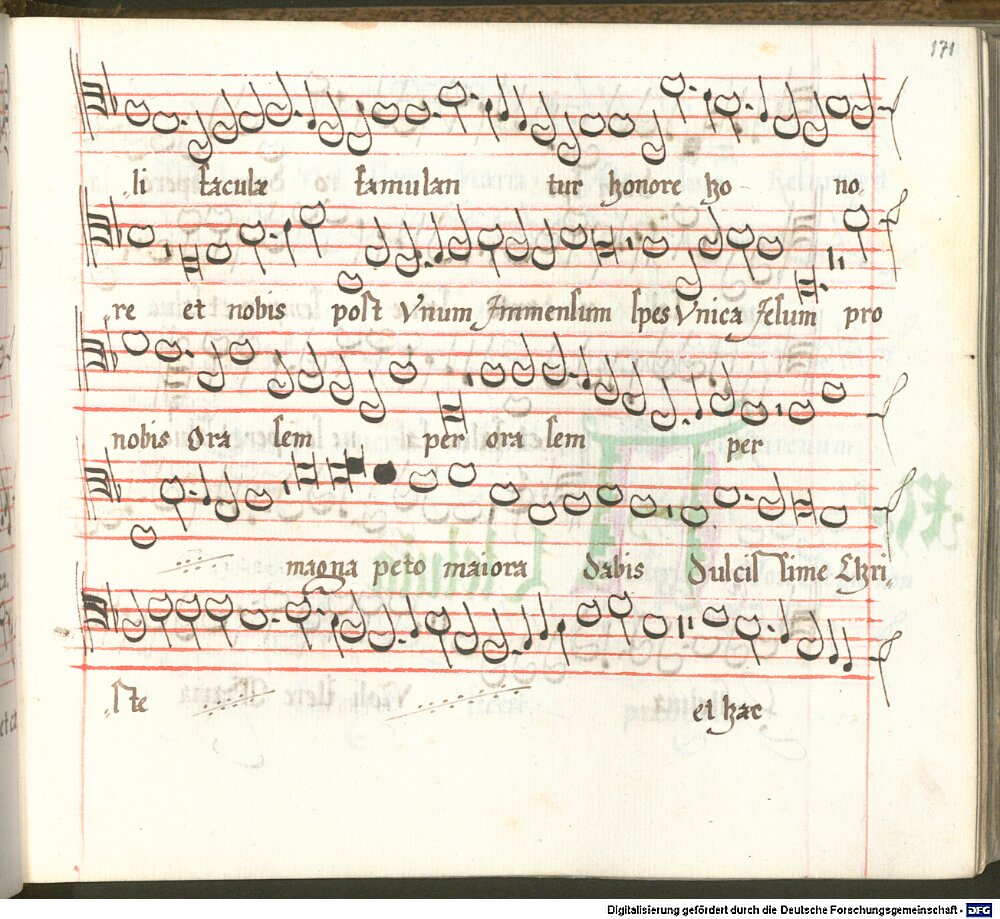 171
li faculæ famulan tur honore ho - no,
re et nobis post Vnum Immensum spes Vnica Jesum pro
nobis Ora sem per ora sem per
magna peto maiora dabis dulcis sime Chri,,
,,ste et hæc
Digitalisierung gefördert durch die Deutsche Forschungsgemeinschaft - DFG